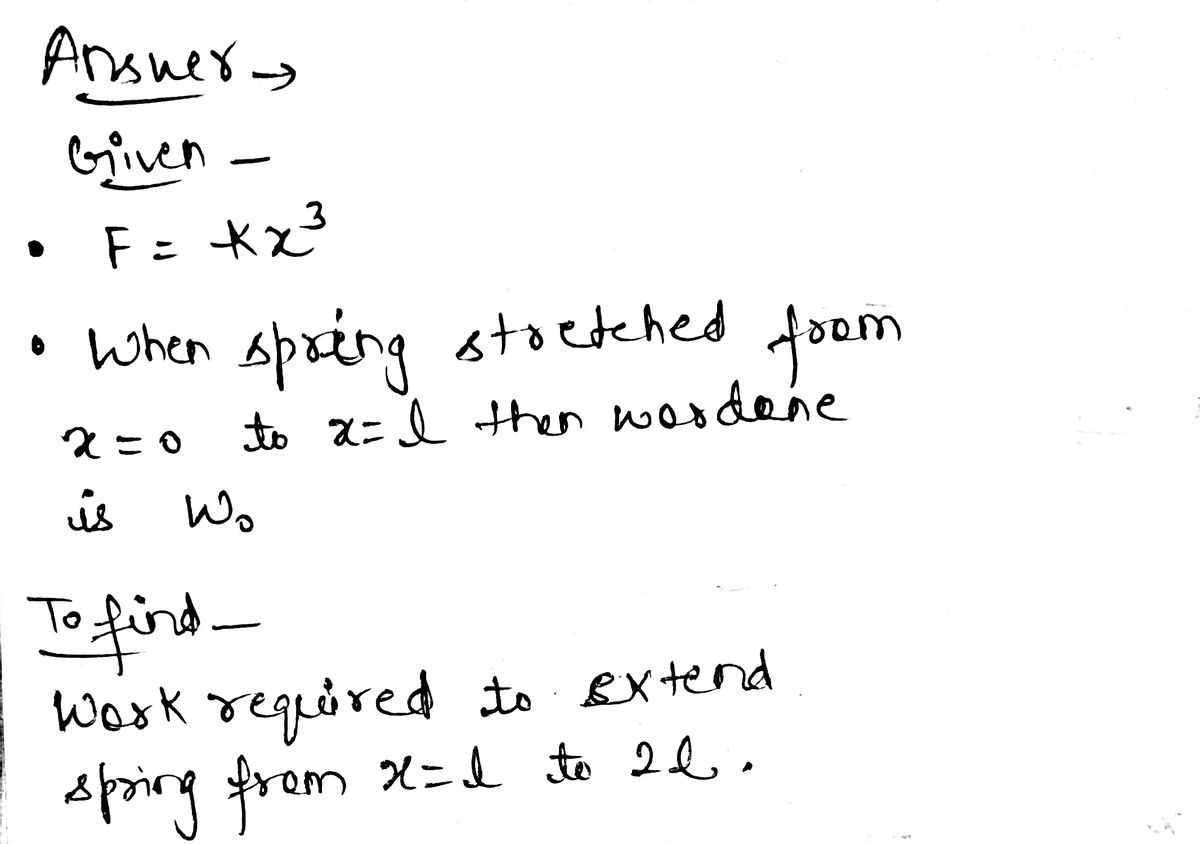 Answer →
Given –
• F = kx³
• When spring stretched from
x = 0 to x = l then wordone
is W₀
To find –
Work required to extend
spring from x = l to 2l.